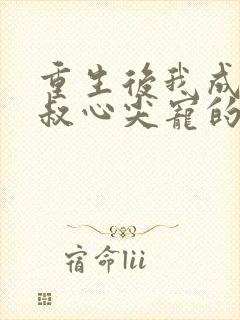 重生後我成
叔心尖寵的
宿命lii